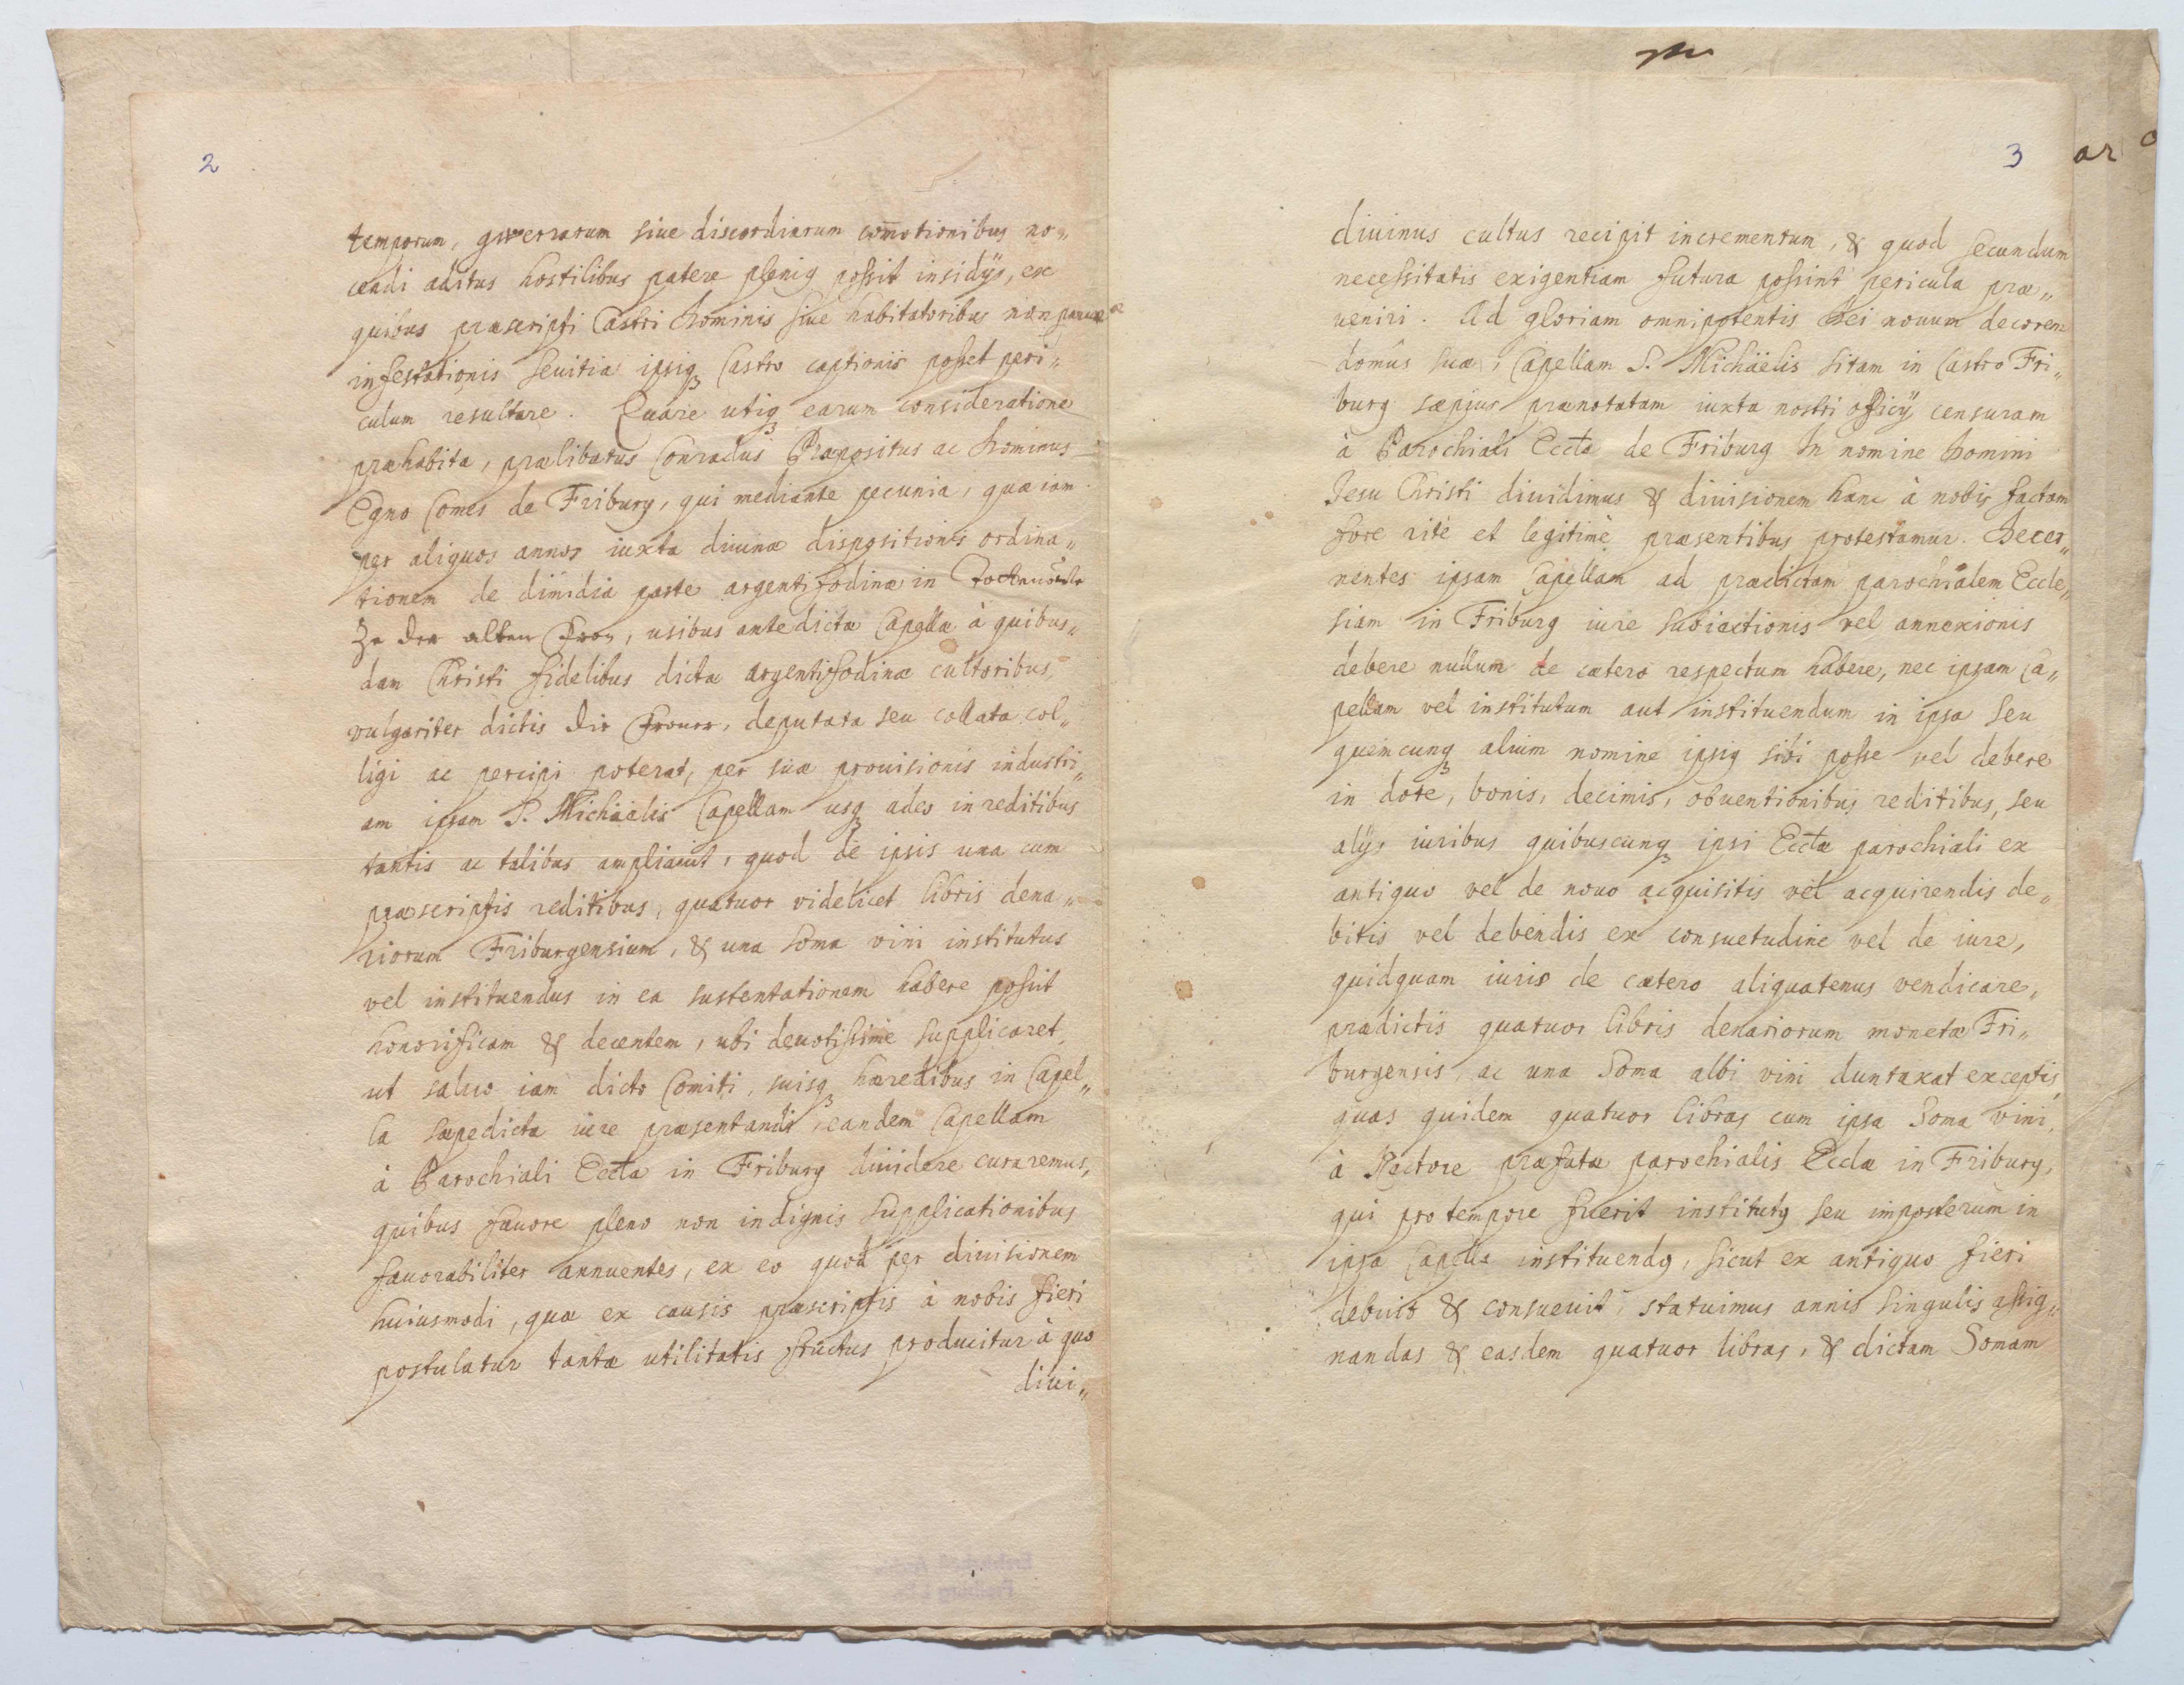 2
temporum, gwerrarum siue discordiarum com̅otionibus no„
cendi aditus hostilibus patere pleniꝯ possit insidijs, ex
quibus præscripti Castri Dominis siue habitatoribus non paruæ
infestationis seuitia ipsiqꝫ Castro captionis posset peri„
culum resultare. Quare utiqꝫ earum consideratione
præhabita, prælibatus Conradus Præpositus ac Dominus
Egno Comes de Friburg, qui mediante pecunia, quæ iam
per aliquos annos iuxta diuinæ dispositionis ordina„
tionem de dimidia parte argentifodinæ in
Ze den alten Fron, usibus antedictæ Capellæ à quibus„
dam Christi fidelibus dictæ argentifodinæ cultoribus,
vulgariter dictis die Froner, deputata seu collata col„
ligi ac percipi poterat, per suæ prouisionis industri„
am ipsam S. Michaëlis Capellam usqꝫ adeo in reditibus
tantis ac talibus ampliauit, quod de ipsis una cum
præscriptis reditibus, quatuor videlicet libris dena„
riorum Friburgensium, & una Soma vini institutus
vel instituendus in ea sustentationem habere possit
honorificam & decentem, ubi deuotissime supplicaret,
ut saluo iam dicto Comiti, suisqꝫ hæredibus in Capel„
la sæpedicta iure præsentandi, eandem Capellam
à Parochiali Eccta in Friburg diuidere curaremus,
quibus fauore pleno non indignis supplicationibus
fauorabiliter annuentes, ex eo quod per diuisionem
huiusmodi, quæ ex causis præscriptis à nobis fieri
postulatur tantæ utilitatis fructus producitur à quo
diui„
3
ar
diuinus cultus recipit incrementum, & quod secundum
necessitatis exigentiam futura possint pericula præ„
ueniri. Ad gloriam omnipotentis Dei nouum decorem
domûs suæ, Capellam S. Michäelis sitam in Castro Fri„
burg sæpius prænotatam iuxta nostri officij censuram
à Parochiali Eccta de Friburg In nomine Domini
Jesu Christi diuidimus & diuisionem hanc à nobis factam
fore ritè et legitimè præsentibus protestamur. Decer„
nentes ipsam Capellam ad prædictam parochialem Eccle„
siam in Friburg iure subiectionis vel annexionis
debere nullum de cætero respectum habere, nec ipsam Ca„
pellam vel institutum aut instituendum in ipsa seu
quemcunqꝫ alium nomine ipsiꝯ sibi posse vel debere
in dote, bonis, decimis, obuentionibus reditibus, seu
alijs iuribus quibuscunqꝫ ipsi Ecctæ parochiali ex
antiquo vel de nouo acquisitis vel acquirendis de„
bitis vel debendis ex consuetudine vel de iure,
quidquam iuris de cætero aliquatenus vendicare,
prædictis quatuor libris denariorum monetæ Fri„
burgensis, ac una Soma albi vini duntaxat exceptis,
quas quidem quatuor libras cum ipsa Soma vini,
à Rectore præfatæ parochialis Ecctæ in Friburg,
qui pro tempore fuerit institutꝯ seu imposterum in
ipsa Capella instituendꝯ, sicut ex antiquo fieri
debuit & consueuit, statuimus annis singulis assig„
nandas & easdem quatuor libras, & dictam Somam